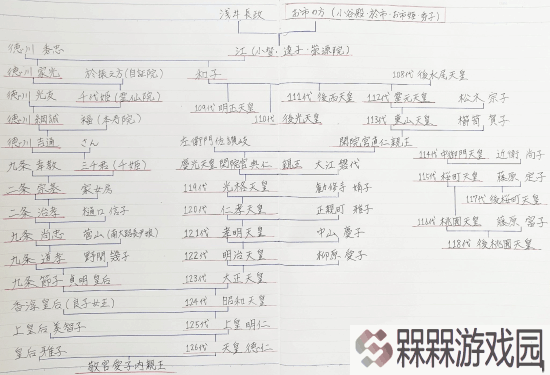 浅井長政 お市の方(小谷殿・於市・お市姫・秀子)
江(小督・達子・崇源院)
徳川 秀忠
徳川 家光 於振之方(自証院) 和子 108代 後水尾天皇
徳川 光友 千代姫(霊仙院) 111代 後西天皇 112代 霊元天皇 松木 宗子
109代 明正天皇 110代 後光天皇
徳川 綱誠 福(本寿院) 113代 東山天皇 櫛笥 賀子
徳川 吉通 さん 左衛門佐讃岐 閑院宮直仁親王
114代 中御門天皇 近衛 尚子
九条 幸教 三千君(千姫) 慶光天皇 閑院宮典仁 親王 大江 磐代
115代 桜町天皇 藤原 定子
二条 宗基 119代 光格天皇 勧修寺 婧子
117代 後桜町天皇
二条 治孝 樋口 信子 120代 仁孝天皇 正親町 雅子
116代 桃園天皇 藤原 富子
九条 尚忠 菅山(南大路長尹娘) 121代 孝明天皇 中山 慶子
118代 後桃園天皇
九条 道孝 野間 幾子 122代 明治天皇 柳原 愛子
九条 節子 貞明皇后 123代 大正天皇
香淳皇后(良子女王) 124代 昭和天皇
上皇后 美智子 125代 上皇 明仁
皇后 雅子 126代 天皇 徳仁
敬宮愛子内親王
槑槑游戏园